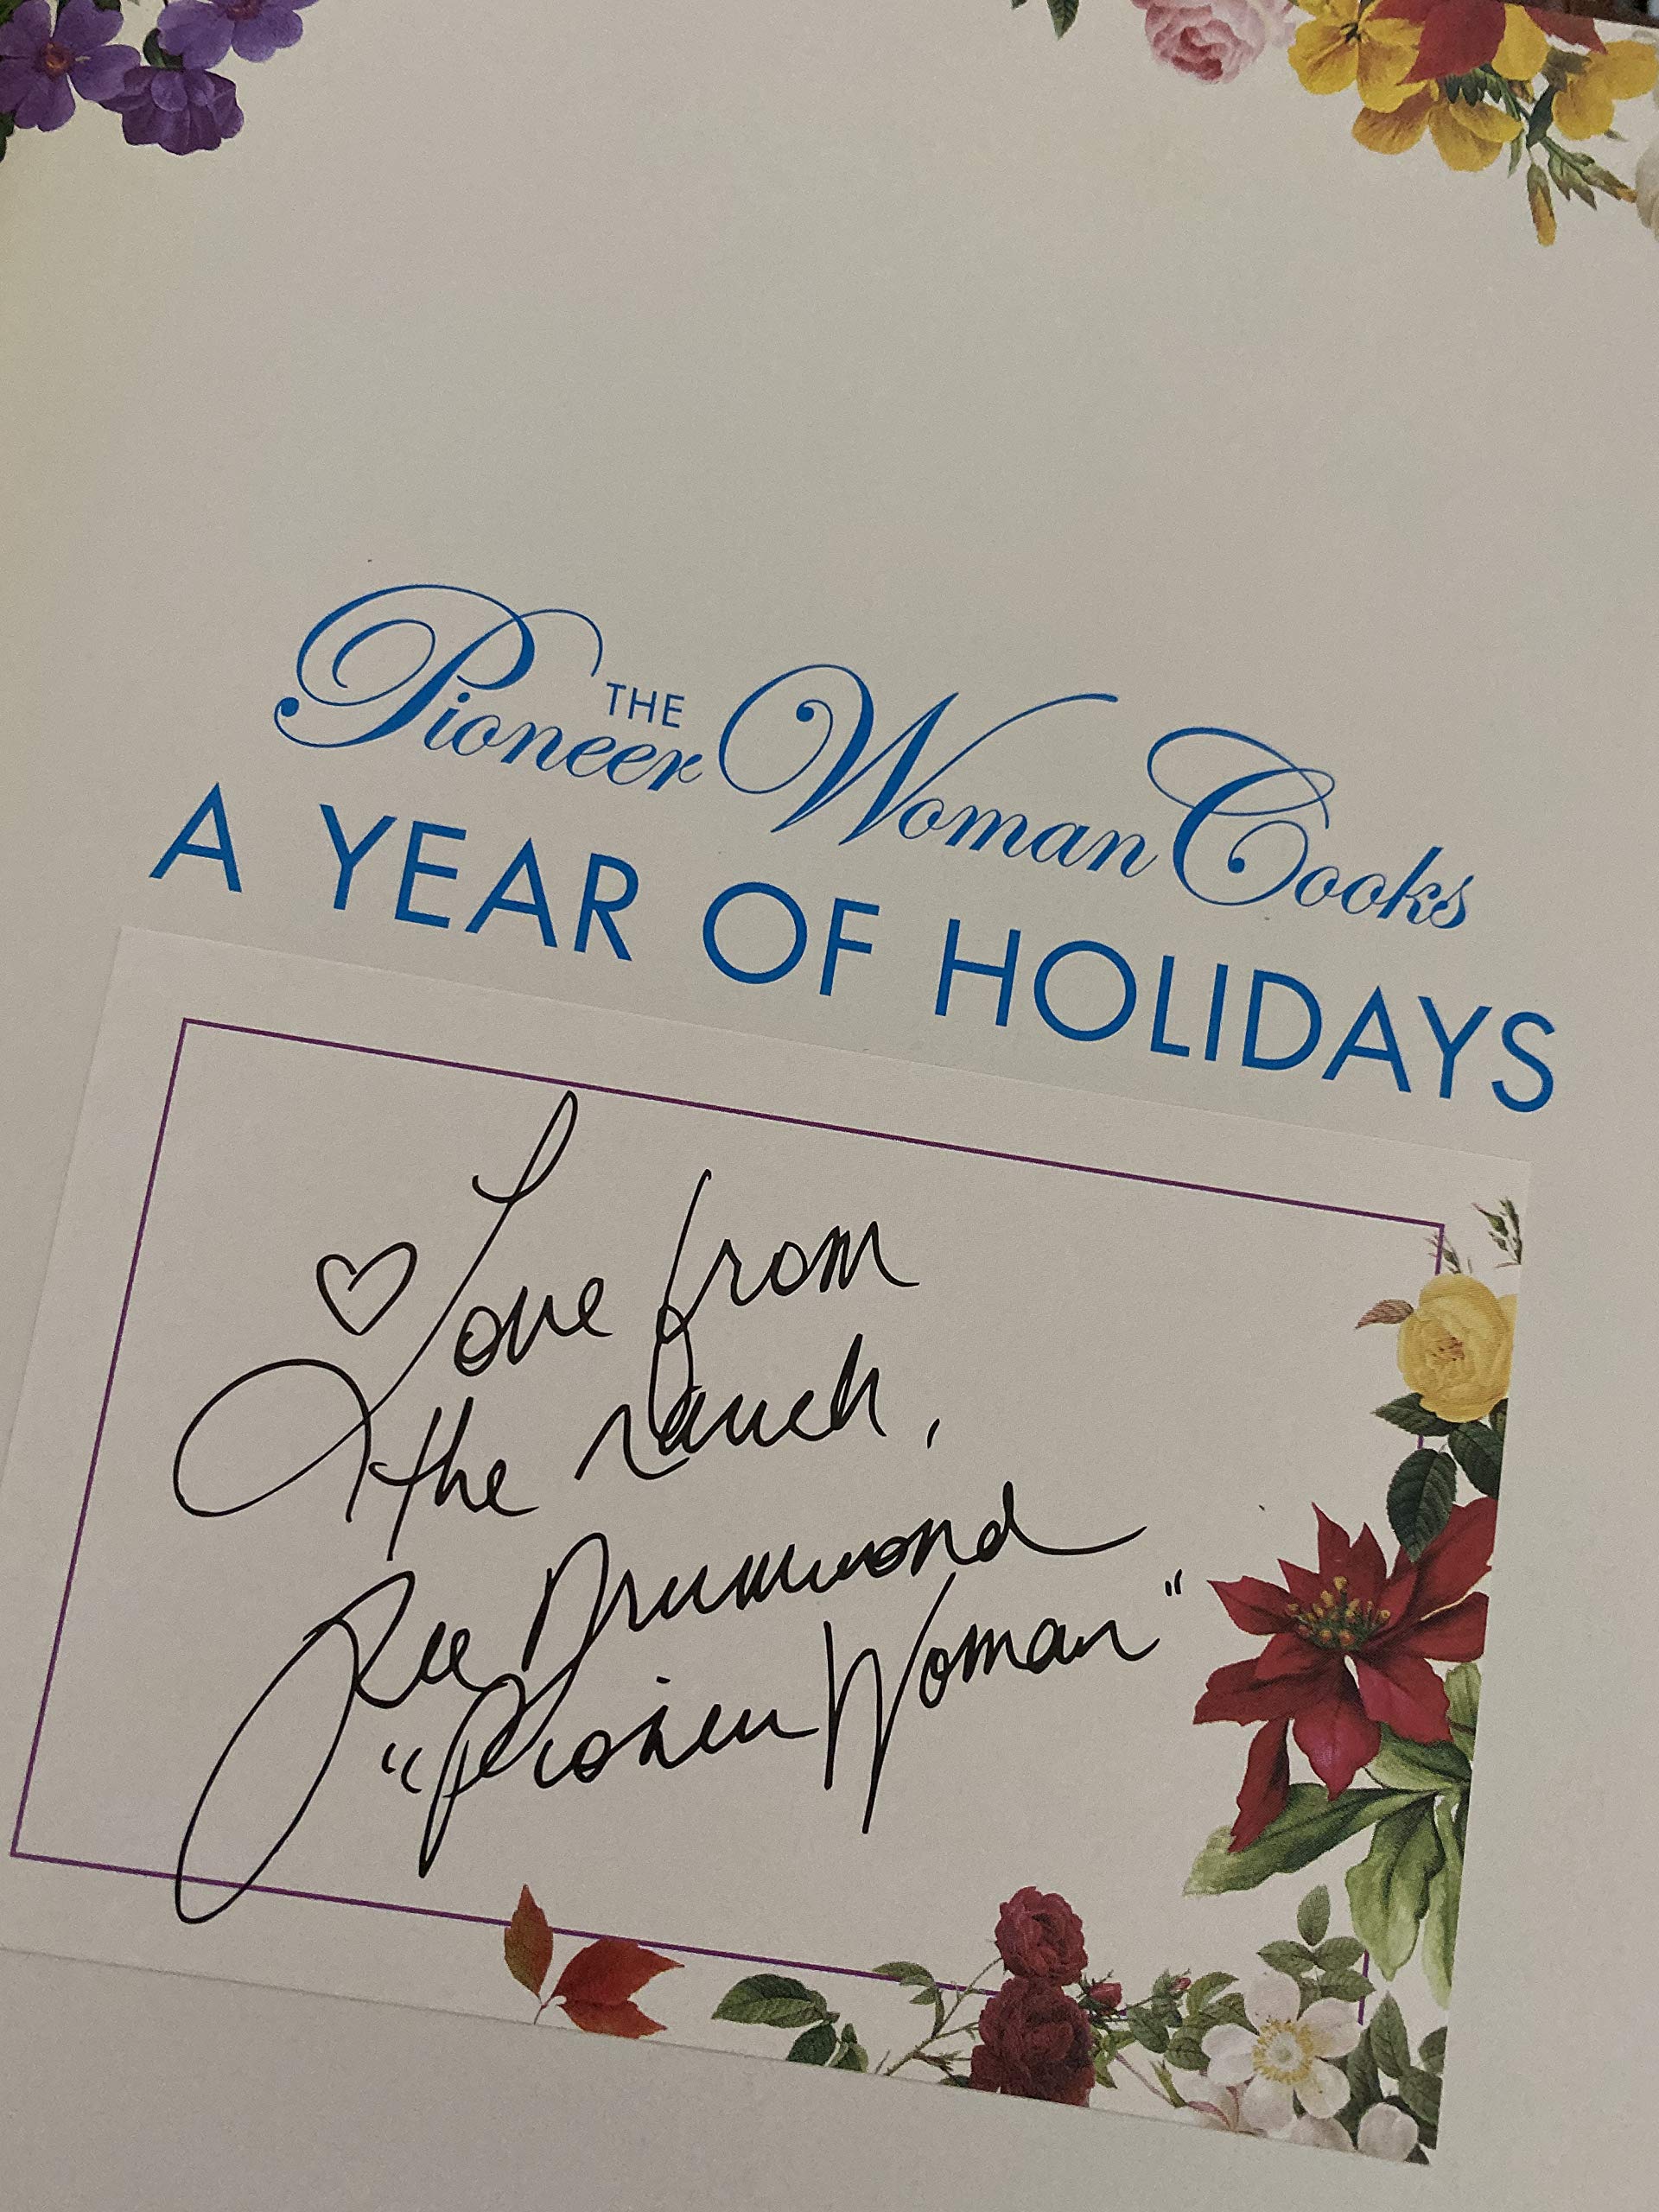 THE
Pioneer Woman Cooks
A YEAR OF HOLIDAYS
Love from
the ranch,
Ree Drummond
"Pioneer Woman"